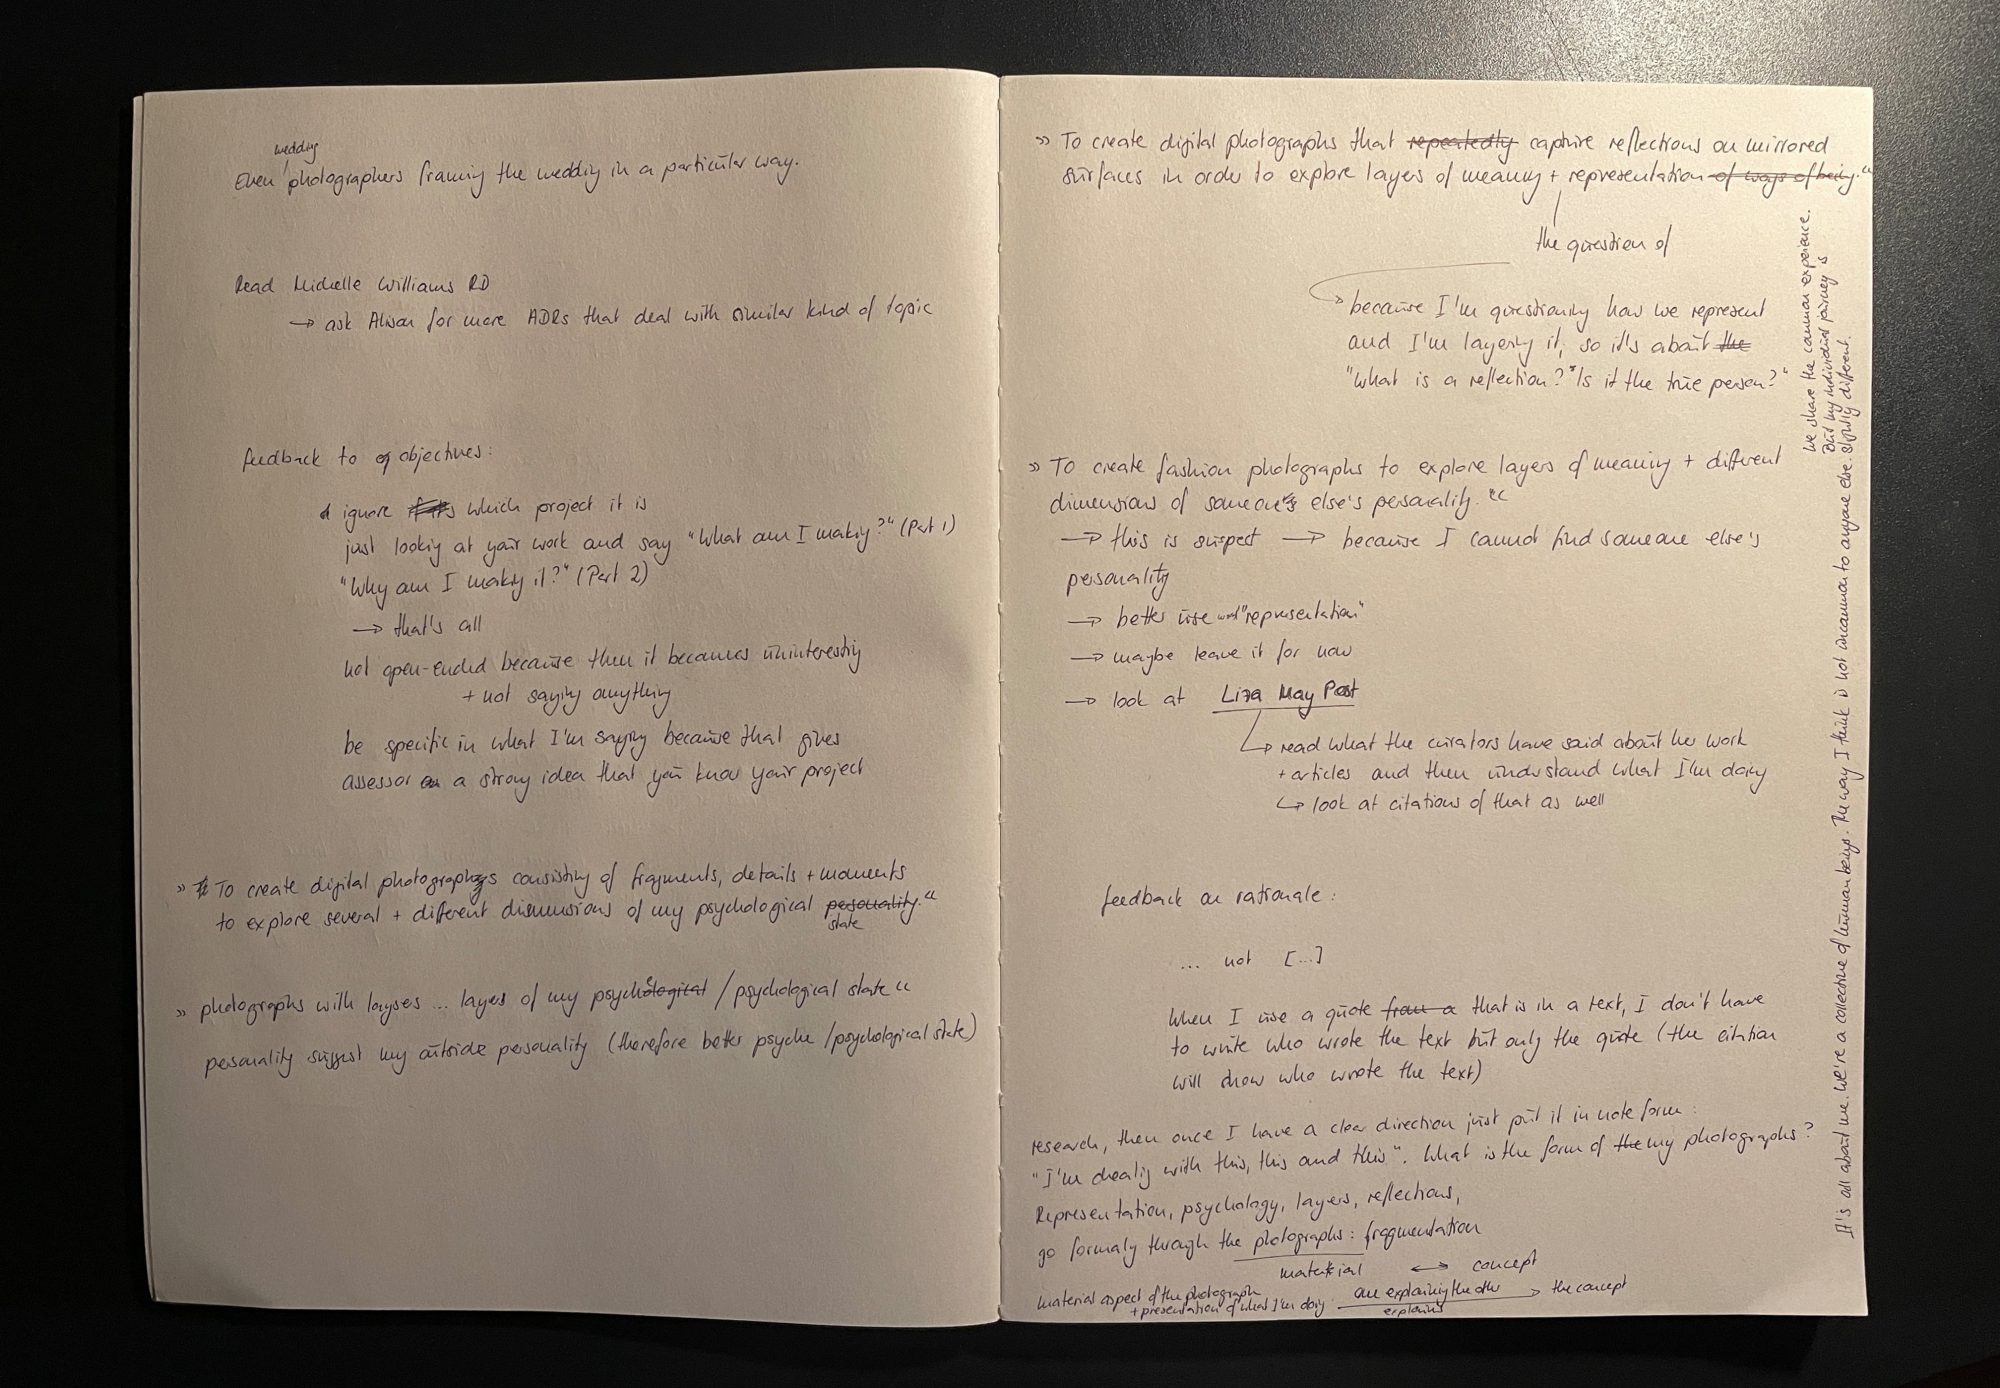 wedding
Even photographers framing the wedding in a particular way.
Read Michelle Williams RD
→ ask Alison for more ADRs that deal with similar kind of topic
feedback to objectives:
ignore which project it is
just looking at your work and say "What am I making?" (Part 1)
"Why am I making it?" (Part 2)
→ that's all
not open-ended because then it becomes uninteresting
+ not saying anything
be specific in what I'm saying because that gives
assessor a strong idea that you know your project
» To create digital photographs consisting of fragments, details + moments
to explore several + different dimensions of my psychological personality."
state
» photographs with layses ... layers of my psychological / psychological state "
personality suggest my outside personality (therefore better psyche / psychological state)
» To create digital photographs that repeatedly capture reflections on mirrored
surfaces in order to explore layers of meaning + representation of ways of being."
the question of
→ because I'm questioning how we represent
and I'm layering it, so it's about the
"What is a reflection?" "Is it the true person?"
» To create fashion photographs to explore layers of meaning + different
dimensions of someone else's personality. "
→ this is suspect → because I cannot find someone else's
personality
→ better use word "representation"
→ maybe leave it for now
→ look at Liza May Post
↳ read what the curators have said about her work
+ articles and then understand what I'm doing
↳ look at citations of that as well
feedback on rationale:
... not [...]
When I use a quote from a that is in a text, I don't have
to write who wrote the text but only the quote (the citation
will show who wrote the text)
research, then once I have a clear direction just put it in note form:
"I'm dealing with this, this and this". What is the form of the my photographs?
Representation, psychology, layers, reflections,
go formaly through the photographs: fragmentation
material ↔ concept
material aspect of the photograph one explaining the other → the concept
+ presentation of what I'm doing explains
It's all about me. We're a collective of human beings. The way I think is not uncommon to anyone else.
We share the common experience.
But my individual journey is
slightly different.